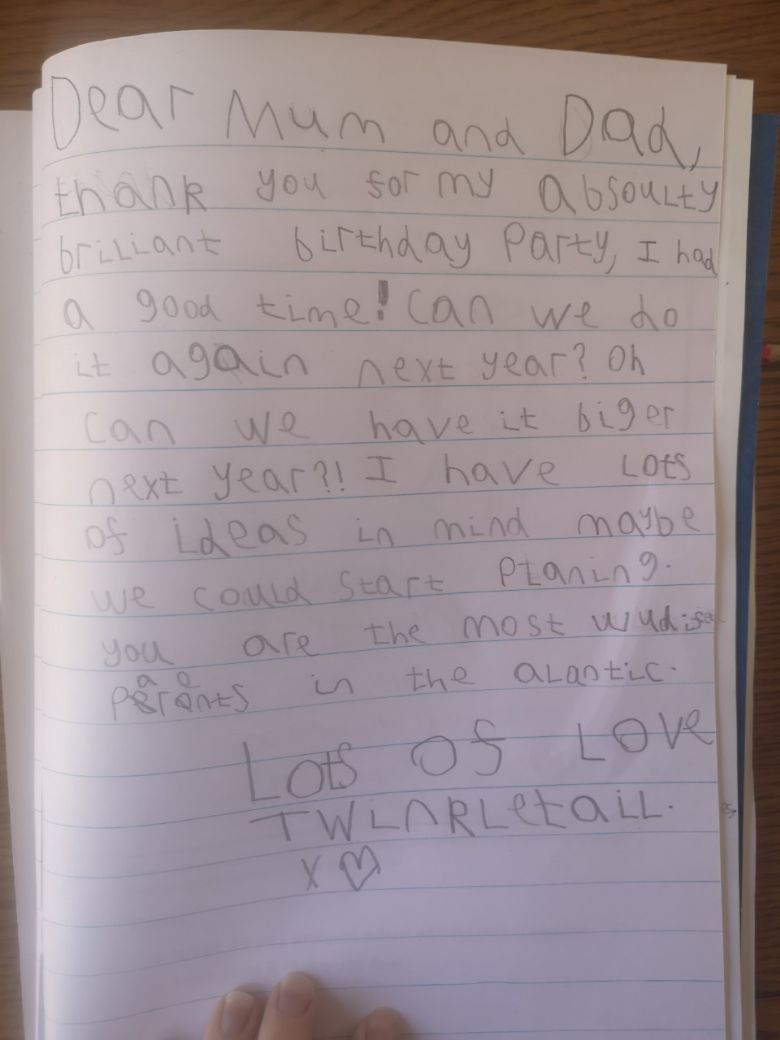 Dear Mum and Dad,
thank you for my absoulty
brilliant birthday Party, I had
a good time! Can we do
it again next year? Oh
can we have it biger
next year?! I have Lots
of ideas in mind maybe
we could start Planing.
you are the most
parents in the alantic.
Lots Of LOVE
TWINKLetaiL.
X ♡